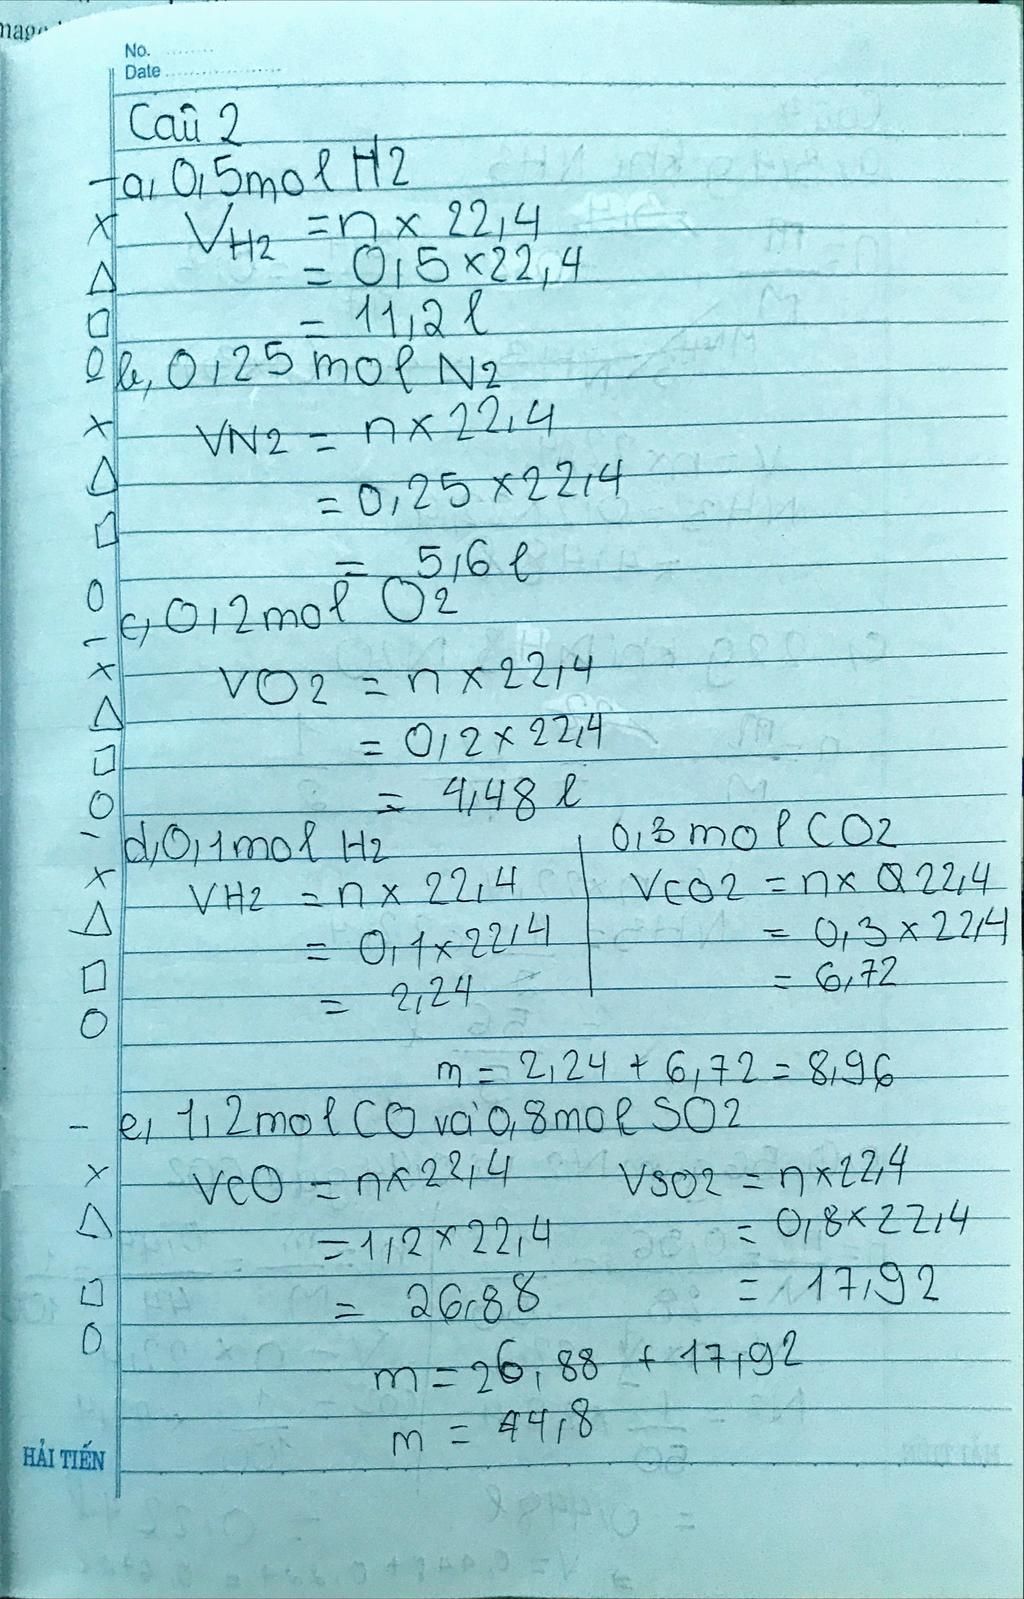 No. ........
Date ....................
Caû 2
a, 0,5mol H2
VH2 = n x 22,4
= 0,5 x 22,4
= 11,2 l
b, 0,25 mol N2
VN2 = n x 22,4
= 0,25 x 22,4
= 5,6 l
c, 0,2mol O2
VO2 = n x 22,4
= 0,2 x 22,4
= 4,48 l
d, 0,1mol H2
VH2 = n x 22,4
= 0,1 x 22,4
= 2,24
0,3 mol CO2
VCO2 = n x 22,4
= 0,3 x 22,4
= 6,72
m = 2,24 + 6,72 = 8,96
e, 1,2mol CO và 0,8mol SO2
VCO = n x 22,4
= 1,2 x 22,4
= 26,88
VSO2 = n x 22,4
= 0,8 x 22,4
= 17,92
m = 26,88 + 17,92
m = 44,8
HẢI TIẾN